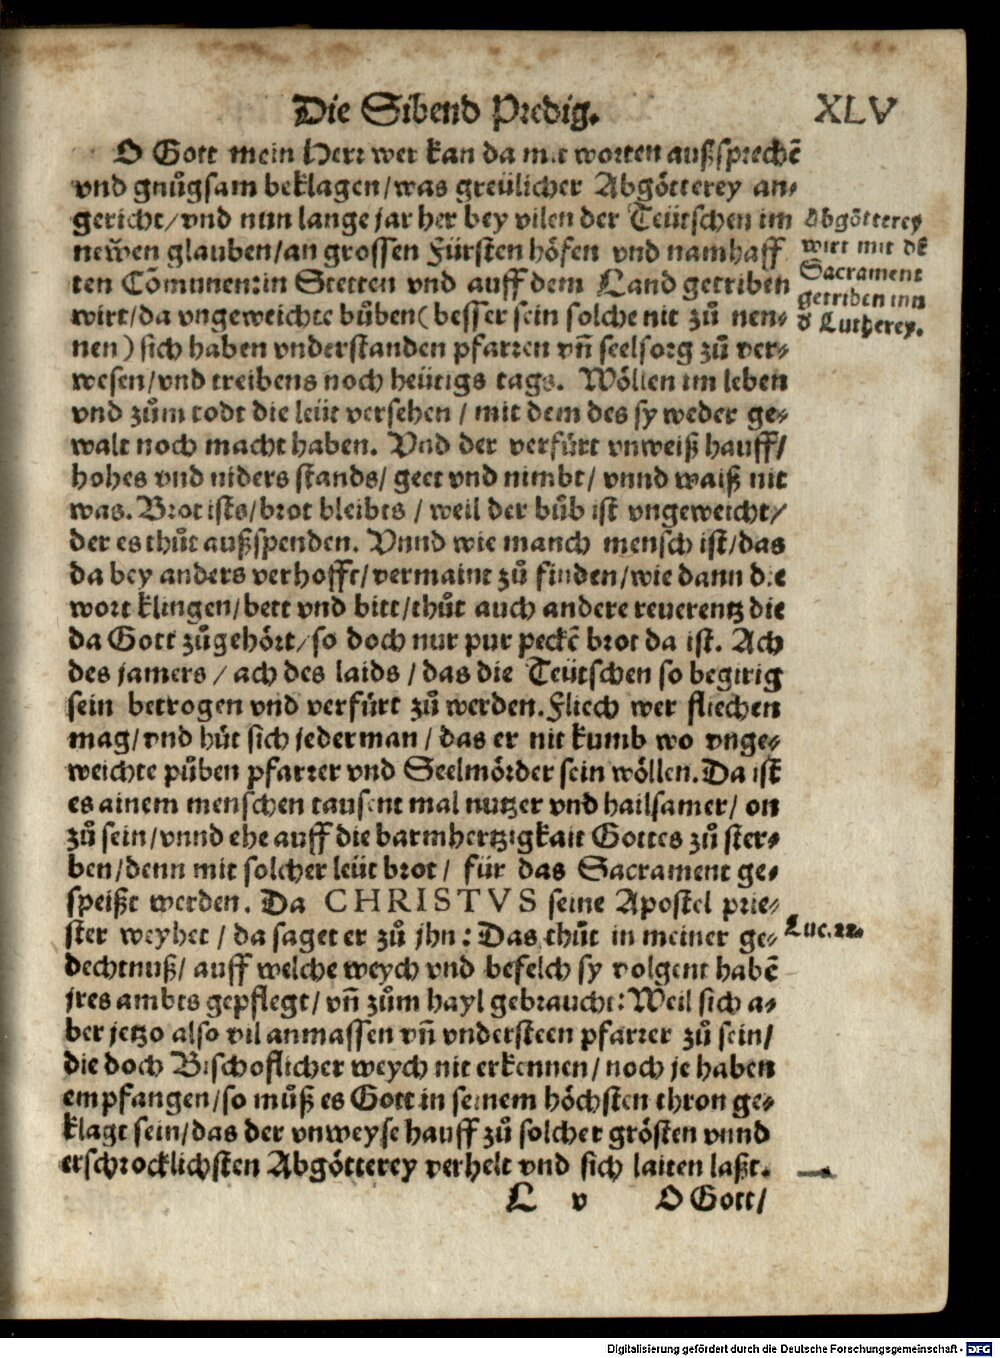 Die Sibend Predig. XLV
O Gott mein Herr wer kan da mit worten außsprechē
vnd gnůgsam beklagen/was greülicher Abgötterey an-
gericht/vnd nun lange jar her bey vilen der Teütschen im
newen glauben/an grossen Fürsten höfen vnd namhaff
ten Cōmunen:in Stetten vnd auff dem Land getriben
wirt/da vngeweichte bůben(besser sein solche nit zů nen-
nen) sich haben vnderstanden pfarren vñ seelsorg zů ver-
wesen/vnd treibens noch heütigs tags. Wöllen im leben
vnd zům todt die leüt versehen / mit dem des sy weder ge-
walt noch macht haben. Vnd der verfürt vnweiß hauff/
hohes vnd niders stands/ geet vnd nimbt/ vnnd waiß nit
was. Brot ists/brot bleibts / weil der bůb ist vngeweicht/
der es thůt außspenden. Vnnd wie manch mensch ist/das
da bey anders verhofft/vermaint zů finden/wie dann die
wort klingen/bett vnd bitt/thůt auch andere reuerentz die
da Gott zůgehört/so doch nur pur peckē brot da ist. Ach
des jamers / ach des laids / das die Teütschen so begirig
sein betrogen vnd verfürt zů werden. Fliech wer fliechen
mag/vnd hüt sich jederman / das er nit kumb wo vnge-
weichte půben pfarrer vnd Seelmörder sein wöllen. Da ist
es ainem menschen tausent mal nutzer vnd hailsamer/ on
zů sein/vnnd ehe auff die barmhertzigkait Gottes zů ster-
ben/denn mit solcher leüt brot / für das Sacrament ge-
speißt werden. Da CHRISTVS seine Apostel prie-
ster weyhet / da saget er zů jhn: Das thůt in meiner ge-
dechtnuß/ auff welche weych vnd befelch sy volgent habē
jres ambts gepflegt/ vñ zům hayl gebraucht: Weil sich a-
ber jetzo also vil anmassen vñ vndersteen pfarrer zů sein/
die doch Bischoflicher weych nit erkennen/ noch je haben
empfangen/so můß es Gott in seinem höchsten thron ge-
klagt sein/das der vnweyse hauff zů solcher grösten vnnd
erschrocklichsten Abgötterey verhelt vnd sich laiten laßt.
L v O Gott/
Abgötterey
wirt mit dē
Sacrament
getriben inn
d Lutherey.
Luc.22.
Digitalisierung gefördert durch die Deutsche Forschungsgemeinschaft - DFG